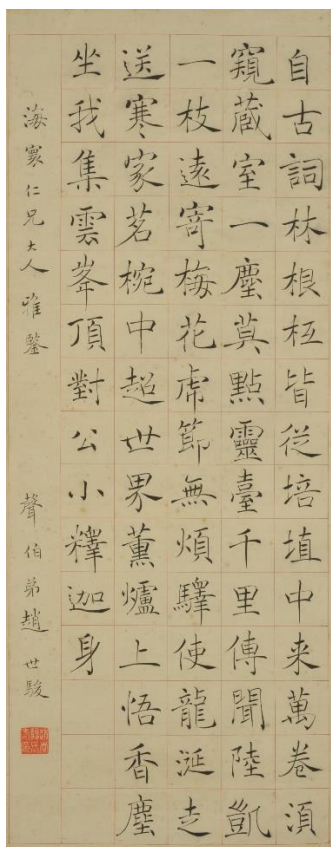 自古詞林根柢皆從培埴中来萬卷須
窺藏室一塵莫點靈臺千里傳聞陸凱
一枝遠寄梅花虎節無煩驛使龍涎走
送寒家茗椀中超世界薰爐上悟香塵
坐我集雲峯頂對公小釋迦身
海寰仁兄大人雅鑒 聲伯弟趙世駿